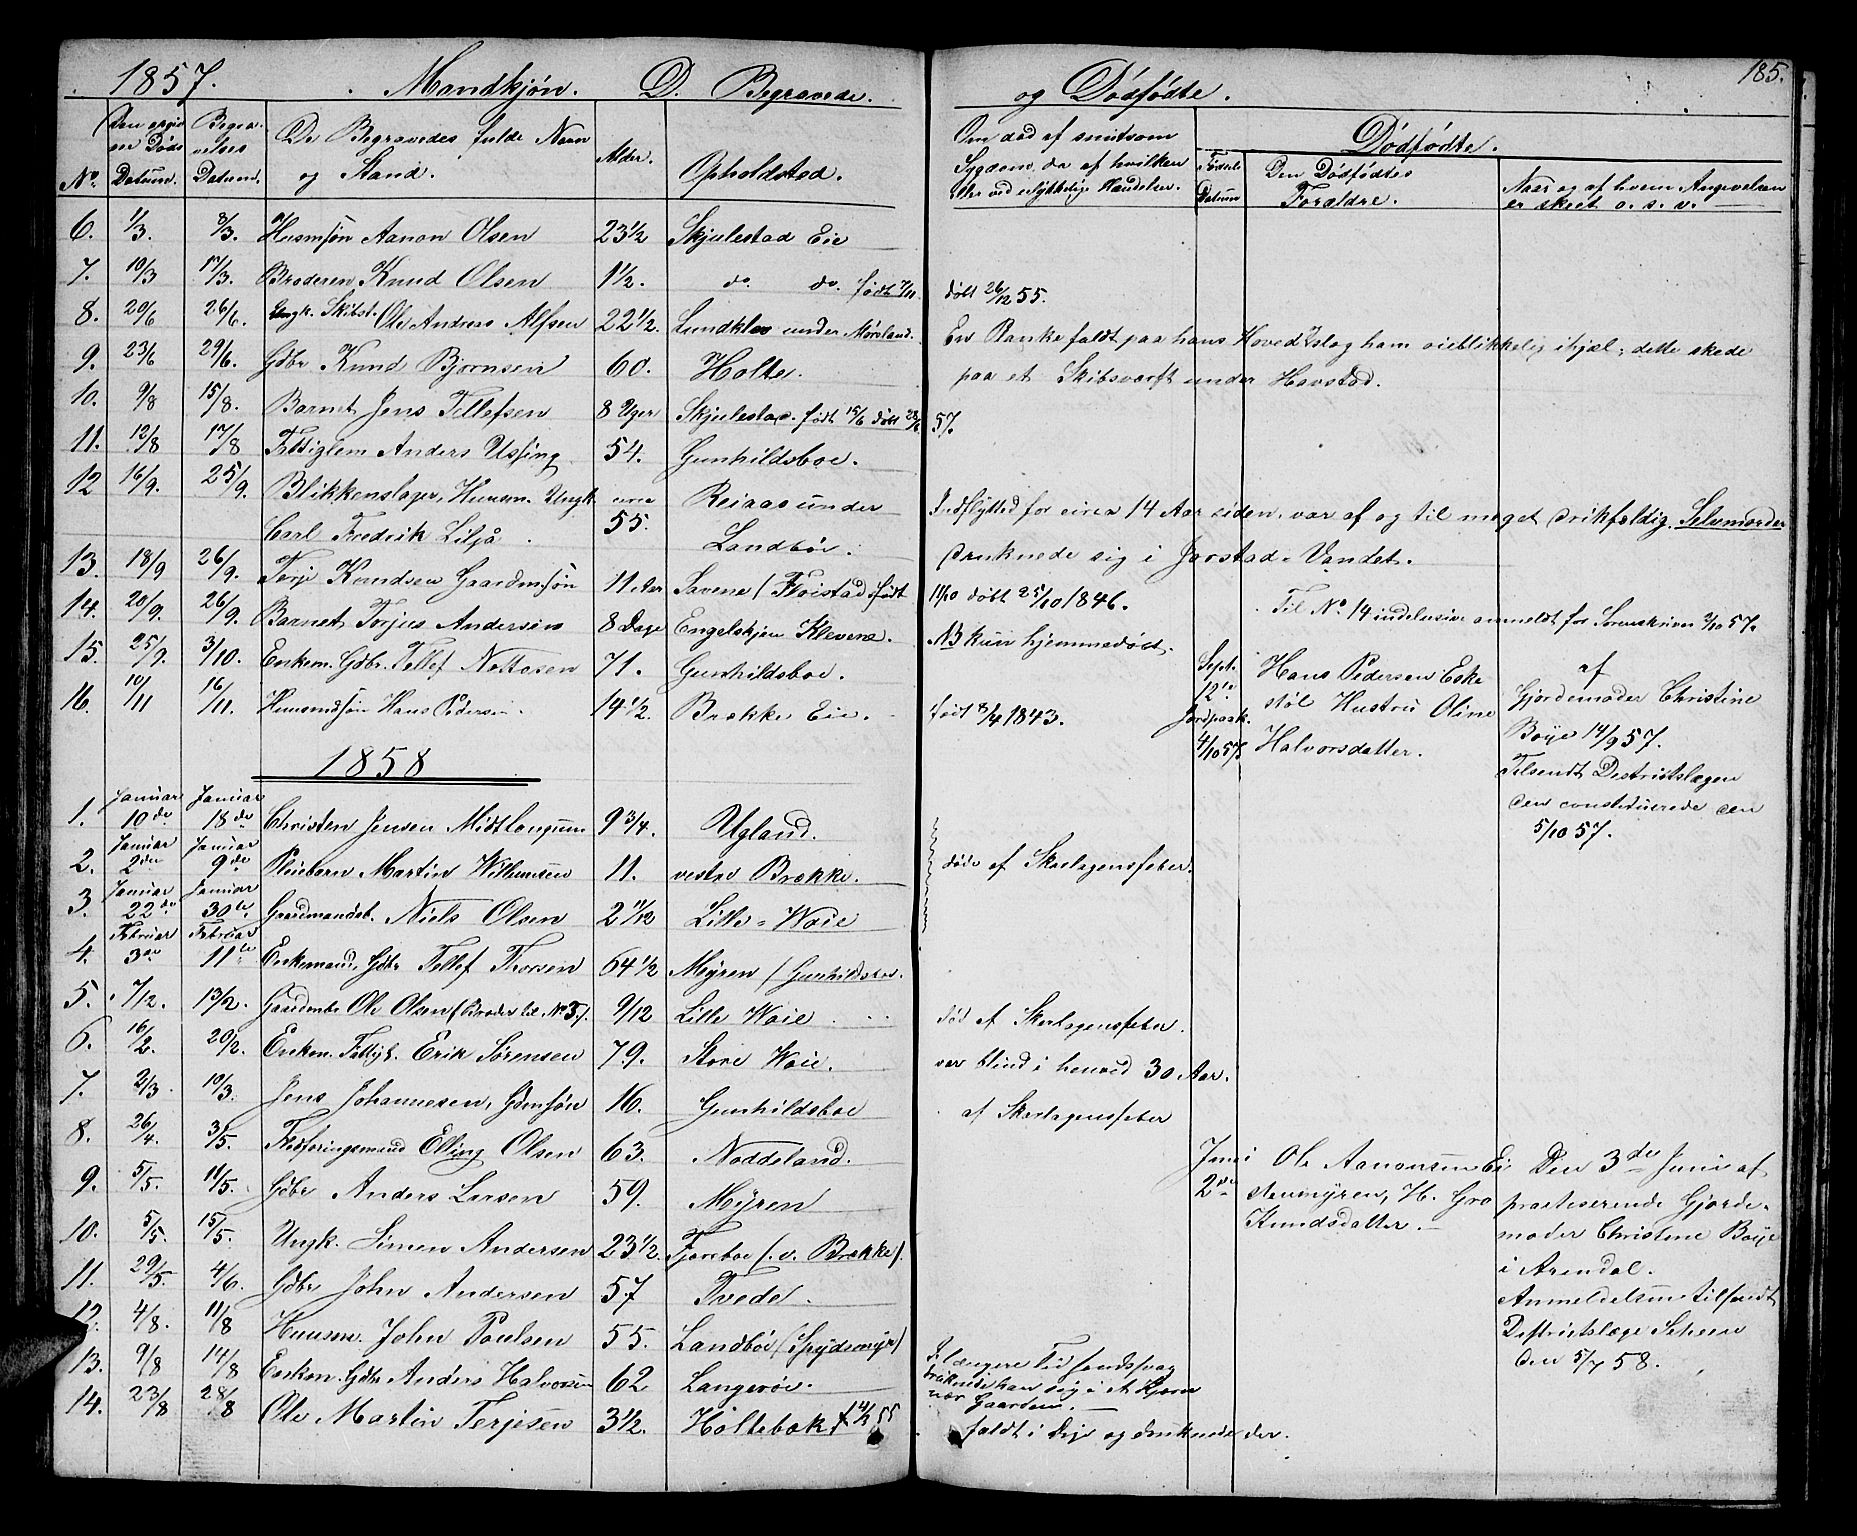 185.
1857. Mandkjøn. D. Begravede. og Dødfødte.
No. Den opgivne Døds Datum. Begravelses Datum. De Begravedes fulde Navn og Stand. Alder. Opholdsted. Om død af smitsom Sygdom, da af hvilken eller ved ulykkelige Hændelser.
Dødfødte.
Fødsels Datum Den Dødfødtes Forældre. Naar og af hvem Angivelsen er skeet o. s. v.
6. 1/3. 8/3. Husmsøn Aanon Olsen 23 1/2 Skjulestad Eie
7. 10/3 17/3. Broderen Knud Olsen 1 1/2. do. do. født 7/11. døbt 26/12 55.
8. 20/6 26/6. Ungk. Skibst. Ole Andreas Alfsen 22 1/2. Lundklev under Mørland. En Planke faldt paa hans Hoved & slog ham øieblikkelig ihjæl; dette skede
paa et Skibsværft under Havstad.
9. 23/6 29/6. Gdbr Knud Bjørnsen 60. Holte.
10. 9/8 15/8. Barnet Jens Tellefsen 8 Uger Skjulestad. født 15/6 døbt 28/6 57.
11. 12/8 17/8 Fattiglem Anders Ussing 54. Gunhildsboe.
12 16/9. 25/9. Blikkenslager, Huusm. Ungk. Carl Fredrik Liljå. circa 55. Reiaas under Landbøe. Indflytted for circa 14 Aar siden, var af og til meget drikfældig. Selvmorder
druknede sig i Jovstad-Vandet.
13. 18/9 26/9. Terje Knudsen Gaardmsøn 11 Aar Savene (Floistad) født 11/10 døbt 25/10 1846.
14. 20/9. 26/9. Barnet Torjus Andersen 8 Dage Engelskjøn Klevene. NB kun hjemmedøbt. Til No 14 inclusive anmeldt for Sorenskriver 2/10 57.
15. 25/9. 3/10. Enkem. Gdbr. Tellef Nottosen 71. Gunhildsboe.
16. 10/11 16/11. Huusmdsøn Hans Pedersen 14 1/2. Brække Eie. født 8/4 1843.
Sept. 12te Jordpaak. 4/10 57. Hans Pedersen Eskestøl Hustru Oline Halvorsdatter.
af Gjordemoder Christine Boye 14/9 57.
Tilsendt Destriktslægen
den constituerede den
5/10 57.
1858
1. Januar 10de Januar 18de Christen Jensen Midtlangum 9 3/4. Ugland.
2. Januar 2den Januar 9de Pleiebarn Martin Willumsen 11. vestre Brække. døde af Skarlagensfeber.
3. Januar 22de Januar 30te Gaardmandsb. Niels Olsen 2 11/12 Lille-Woie
4. Februar 3de Februar 11te Enkemand, Gdbr Tellef Thorsen 64 1/2 Myren (Gunhildsboe.
5. 7/12. 13/2. Gaardmbr Ole Olsen (Broder til No 3). 9/12 Lille Woie død af Skarlagensfeber.
6. 16/2. 20/2. Enkem. Fattigl. Erik Sørensen 79. Store Woie. var blind i henved 30 Aar.
7. 2/3. 10/3. Jens Johannesen, Gdmsøn 16. Gunhildsboe af Skarlagensfeber
8. 26/4. 3/5. Fledføringsmand Elling Olsen 63. Noddeland.
9. 5/5. 11/5. Gdbr Anders Larsen 59. Myren
10. 5/5. 15/5. Ungk. Simen Andersen 23 1/2. Tjoreboe (. v. Brække).
11. 29/5. 4/6. Gdbr John Andersen 57 Tvede.
12. 4/8. 11/8 Huusm. John Poulsen 55. Landbøe (Spydsmyr)
13. 9/8 14/8 Enkem. Gdbr Anders Halvorsen 62 Langevøe. I længere Tid sindssvag druknede han sig i et Kjærn nær Gaarden.
14. 23/8 28/8 Ole Martin Terjesen 3 1/2. Holtebæk faldt i Dige og druknede der.
Juni 2den Ole Aanonsen Eistenmyren, H. Gro Knudsdatter.
Den 3die Juni af
practiserende Gjorde-
moder Christine Boye
i Arendal.
Anmeldelsen tilsendt
Destriktslæge
den 5/7 58.